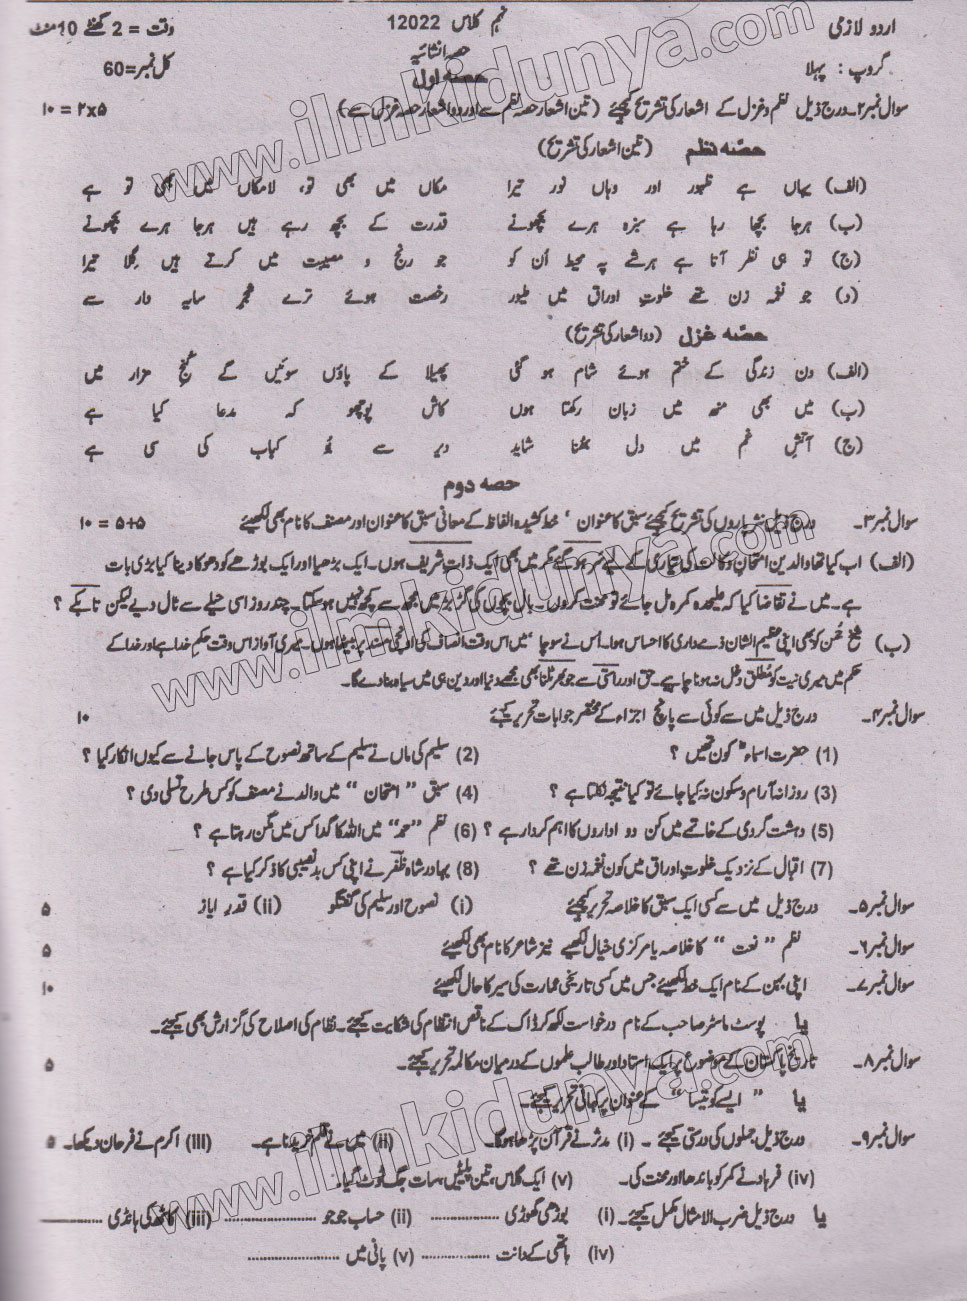 اردو لازمی نہم کلاس 12022 وقت = 2 گھنٹے 10 منٹ
گروپ : پہلا حصہ انشائیہ کل نمبر=60
حصہ اول
سوال نمبر۲۔ درج ذیل نظم و غزل کے اشعار کی تشریح کیجئے (تین اشعار حصہ نظم سے اور دو اشعار حصہ غزل سے) ۲x۵ = ۱۰
حصّہ نظم (تین اشعار کی تشریح)
(الف) یہاں ہے ظہور اور وہاں نور تیرا مکاں میں بھی تو، لامکاں میں بھی تو ہے
(ب) ہرجا بچھا رہا ہے سبزہ ہرے بچھونے قدرت کے بچھ رہے ہیں ہرجا ہرے بچھونے
(ج) تو ہی نظر آتا ہے ہرشے پہ محیط اُن کو جو رنج و مصیبت میں کرتے ہیں گِلا تیرا
(د) جو نغمہ زن تھے خلوتِ اوراق میں طیور رخصت ہوئے ترے شجرِ سایہ دار سے
حصّہ غزل (دو اشعار کی تشریح)
(الف) دن زندگی کے ختم ہوئے شام ہو گئی پھیلا کے پاؤں سوئیں گے کُنجِ مزار میں
(ب) میں بھی منھ میں زبان رکھتا ہوں کاش پوچھو کہ مدعا کیا ہے
(ج) آتشِ غم میں دل بھنا شاید دیر سے بُو کباب کی سی ہے
حصہ دوم
سوال نمبر۳۔ درج ذیل نثرپاروں کی تشریح کیجئے سبق کا عنوان ، خط کشیدہ الفاظ کے معانی سبق کا عنوان اور مصنف کا نام بھی لکھیئے ۵+۵ = ۱۰
(الف) اب کیا تھا والدین امتحانِ وکالت کی تیاری کے لیے سر ہو گئے مگر میں بھی ایک ذات شریف ہوں۔ ایک بڑھیا اور ایک بوڑھے کو دھوکا دینا کیا بڑی بات
ہے۔ میں نے تقاضا کیا کہ علیحدہ کمرہ مل جائے تو محنت کروں۔ بال بچوں کی گڑبڑ میں مجھ سے کچھ نہیں ہوسکتا۔ چند روز اسی حیلے سے ٹال دیے لیکن تابکے ؟
(ب) شیخ جمن کو بھی اپنی عظیم الشان ذمے داری کا احساس ہوا۔ اُس نے سوچا ‘میں اس وقت انصاف کی اونچی مسند پر بیٹھا ہوں۔ میری آواز اس وقت حکمِ خدا ہے اور خدا کے
حکم میں میری نیت کو مُطلق دخل نہ ہونا چاہیے۔ حق اور راستی سے جو بھر ٹلنا بھی مجھے دنیا اور دین ہی میں سیاہ بنا دے گا۔
سوال نمبر۴۔ درج ذیل میں سے کوئی سے پانچ اجزاء کے مختصر جوابات تحریر کیجئے ۱۰
(1) حضرت اسماءؓ کون تھیں ؟ (2) سلیم کی ماں نے سلیم کے ساتھ نصوح کے پاس جانے سے کیوں انکار کیا ؟
(3) روزانہ آرام و سکون نہ کیا جائے تو کیا نتیجہ نکلتا ہے ؟ (4) سبق " امتحان " میں والد نے مصنف کو کس طرح تسلی دی ؟
(5) دہشت گردی کے خاتمے میں کن دو اداروں کا اہم کردار ہے ؟ (6) نظم "حمد" میں اللہ کا گدا کس میں مگن رہتا ہے ؟
(7) اقبال کے نزدیک خلوتِ اوراق میں کون نغمہ زن تھے ؟ (8) بہادر شاہ ظفر نے اپنی کس بدنصیبی کا ذکر کیا ہے ؟
سوال نمبر۵۔ درج ذیل میں سے کسی ایک سبق کا خلاصہ تحریر کیجئے (i) نصوح اور سلیم کی گفتگو (ii) قدرِ ایاز ۵
سوال نمبر۶۔ نظم " نعت " کا خلاصہ یا مرکزی خیال لکھیے نیز شاعر کا نام بھی لکھیئے ۵
سوال نمبر۷۔ اپنی بہن کے نام ایک خط لکھیئے جس میں کسی تاریخی عمارت کی سیر کا حال لکھیئے ۱۰
یا پوسٹ ماسٹر صاحب کے نام درخواست لکھ کر ڈاک کے ناقص انتظام کی شکایت کیجئے۔ نظام کی اصلاح کی گزارش بھی کیجئے۔
سوال نمبر۸۔ تاریخ پاکستان کے موضوع پر ایک استاد اور طالب علموں کے درمیان مکالمہ تحریر کیجئے۔ ۵
یا " ایسے کو تیسا " کے عنوان پر کہانی تحریر کیجئے۔
سوال نمبر۹۔ درج ذیل جملوں کی درستی کیجئے ۔ (i) مدثر نے قرآن پڑھا ہوگا۔ (ii) میں نے قلم خریدنا ہے۔ (iii) اکرم نے فرحان دیکھا۔ ۵
(iv) فرہاد نے کمر کو باندھا اور محنت کی۔ (v) ایک گلاس، تین پلیٹیں، سات جگ ٹوٹ گیا۔
یا درج ذیل ضرب الامثال مکمل کیجئے۔ (i) بوڑھی گھوڑی ............... (ii) حساب جوجو ............... (iii) کاٹھ کی ہانڈی ...............
(iv) ہاتھی کے دانت ............... (v) پانی میں ...............
www.ilmkidunya.com
www.ilmkidunya.com
www.ilmkidunya.com